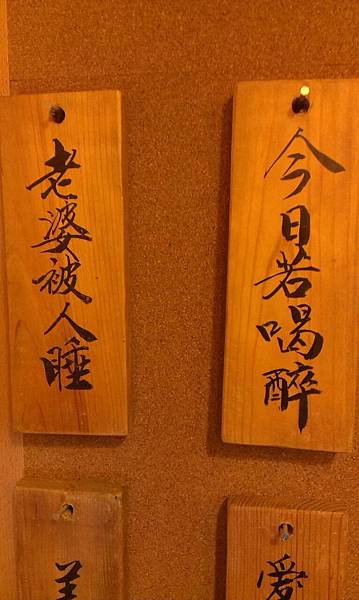 今日若喝醉
老婆被人睡
愛